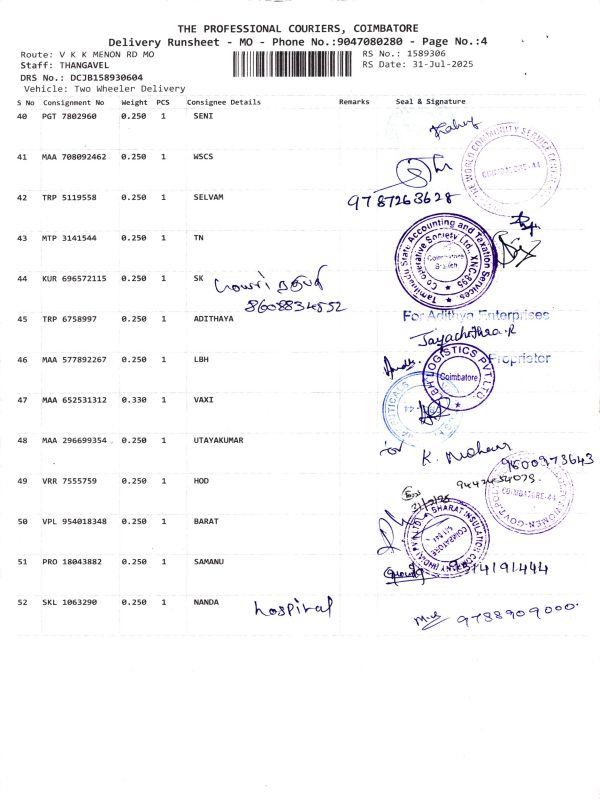 THE PROFESSIONAL COURIERS, COIMBATORE
Delivery Runsheet - MO - Phone No.:9047080280 - Page No.:4
Route: V K K MENON RD MO
RS No.: 1589306
Staff: THANGAVEL
RS Date: 31-Jul-2025
DRS No.: DCJB158930604
Vehicle: Two Wheeler Delivery
S No Consignment No Weight PCS Consignee Details Remarks Seal & Signature
40 PGT 7802960 0.250 1 SENI
41 MAA 708092462 0.250 1 WSCS
THE WORLD COMMUNITY SERVICE CENTRE
COIMBATORE-44
42 TRP 5119558 0.250 1 SELVAM 9787263628
43 MTP 3141544 0.250 1 TN
Tamilnadu State Accounting and Taxation Services
Co operative Society Ltd., XNC-895
Coimbatore
Branch
44 KUR 696572115 0.250 1 SK
8608834552
45 TRP 6758997 0.250 1 ADITHAYA
For Adithya Enterprises
Jayachithra.R
Proprietor
46 MAA 577892267 0.250 1 LBH
LBH LOGISTICS PVT LTD
Coimbatore
47 MAA 652531312 0.330 1 VAXI
48 MAA 296699354 0.250 1 UTAYAKUMAR
for K. Mohan
9600973643
49 VRR 7555759 0.250 1 HOD
9442454079
COIMBATORE-44
50 VPL 954018348 0.250 1 BARAT
BHARAT INSULATION COMPANY (INDIA) PVT LTD
COIMBATORE
641 044
51 PRO 18043882 0.250 1 SAMANU
52 SKL 1063290 0.250 1 NANDA hospital
9788909000